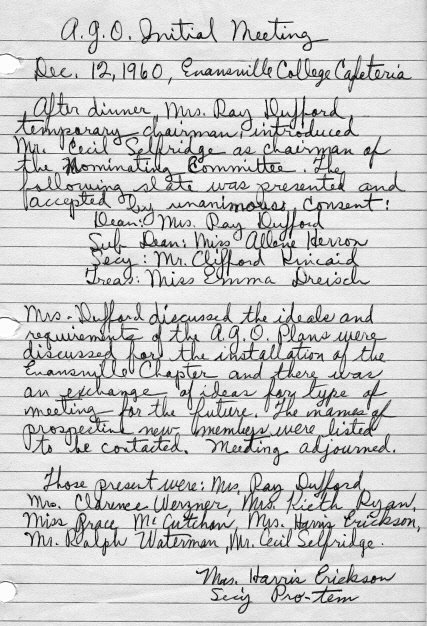 A.G.O. Initial Meeting
Dec. 12, 1960, Evansville College Cafeteria
After dinner, Mrs. Ray Dufford
temporary chairman, introduced
Mr. Cecil Selfridge as chairman of
the Nominating Committee. The
following slate was presented and
accepted by unanimous consent:
Dean: Mrs. Ray Dufford
Sub-Dean: Miss Allene Herron
Secy: Mr. Clifford Kincaid
Treas: Miss Emma Dreisch
Mrs. Dufford discussed the ideals and
requirements of the A.G.O. Plans were
discussed for the installation of the
Evansville Chapter and there was
an exchange of ideas for type of
meeting for the future. The names of
prospective new members were listed
to be contacted. Meeting adjourned.
Those present were: Mrs. Ray Dufford
Mrs. Clarence, Mrs. Kieth Ryan,
Miss Grace McCutchan, Mrs. Harris Erickson,
Mr. Ralph Waterman, Mr. Cecil Selfridge.
Mrs. Harris Erickson
Sec'y Pro-tem